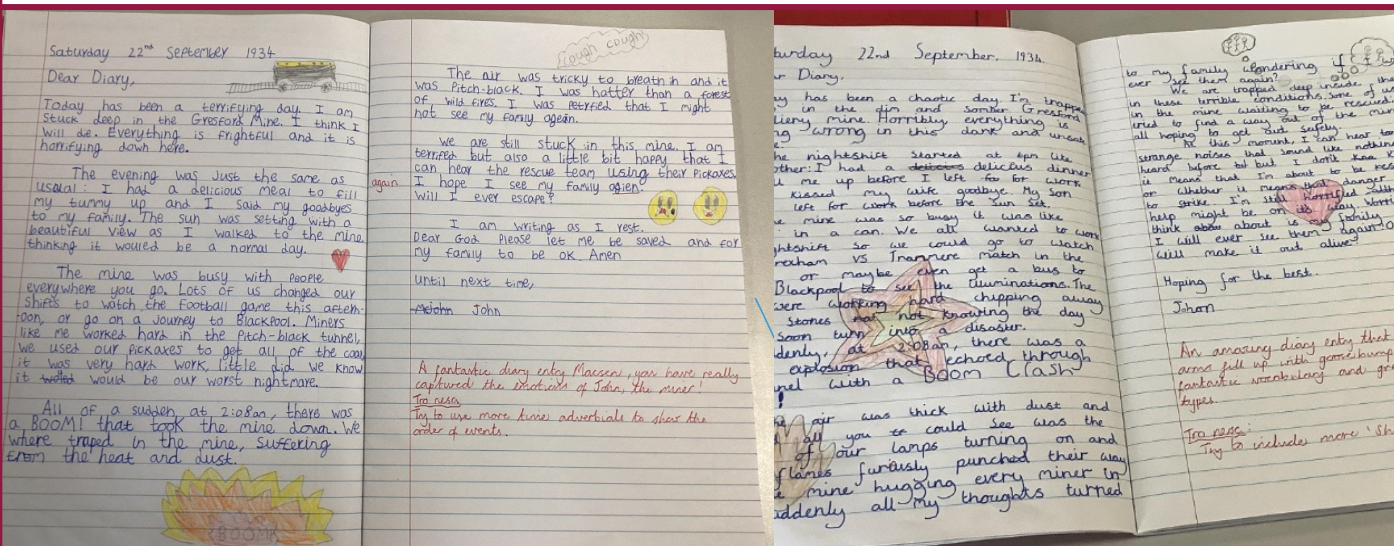 Saturday 22nd September 1934
Dear Diary,
Today has been a terrifying day. I am
stuck deep in the Gresford Mine. I think I
will die. Everything is frightful and it is
horrifying down here.
The evening was just the same as
usual: I had a delicious meal to fill
my tummy up and I said my goodbyes
to my family. The sun was setting with a
beautiful view as I walked to the mine
thinking it wouled be a normal day.
The mine was busy with people
everywhere you go. Lots of us changed our
shifts to watch the football game this aftern-
oon, or go on a journey to Blackpool. Miners
like me worked hard in the Pitch-black tunnel,
we used our pickaxes to get all of the coal
it was very hard work, little did we know
it would be our worst nightmare.
All of a sudden, at 2:08an, there was
a BOOM! that took the mine down. We
where traped in the mine, suffering
from the heat and dust.
BOOM
cough cough!
The air was tricky to breath in and it
was Pitch-black. I was hatter than a forest
of wild fires. I was petryfied that I might
not see my family agean.
We are still stuck in this mine. I am
terrifed but also a little bit happy that I
can hear the rescue team using their pickaxes.
again
I hope I see my family agien.
Will I ever escape?
I am writing as I rest.
Dear God Please let me be saved and for
my family to be ok. Amen
Until next time,
John
A fantastic diary entry Macsen, you have really
captured the emotions of John, the miner!
Tro nesa:
Try to use more time adverbials to show the
order of events.
urday 22nd September, 1934.
r Diary,
ay has been a chaotic day. I'm trapped
in the dim and somber Gresford
mine. Horribly everything is
ng wrong in this dark and unsafe
he nightshift started at 6pm like
other: I had a delicious dinner
l me up before I left for work
kissed my wife goodbye. My son
left for work before the sun set.
e mine was so busy it was like
in a can. We all wanted to work
ghtshift so we could go to watch
rexham VS Tranmere match in the
or maybe even get a bus to
Blackpool to see the illuminations. The
were working hard chipping away
stones not knowing the day
soon turn into a disaster.
denly, at 2:08an, there was a
explosion that echoed through
nel with a Boom Crash
!
air was thick with dust and
all you could see was the
of our lamps turning on and
flames furiously punched their way
e mine hugging every miner in
uddenly all my thoughts turned
to my family wondering if
ever see them again?
We are trapped deep inside
in these terrible conditions. Some of us
in the mine waiting to be rescued
tried to find a way out of the
all hoping to get out safely.
At this moment, I can hear
strange noises that sound like nothing
heard before but I don't
it means that I'm about to be
or whether it means that danger
to strike. I'm still horrified
help might be on its way.
think about is family
I will ever see them again
will make it out alive
Hoping for the best.
Johon
An amazing diary entry that
arms fill up with goosebump
fantastic vocabulary and
types.
Tro nesa:
Try to include more 'Sh